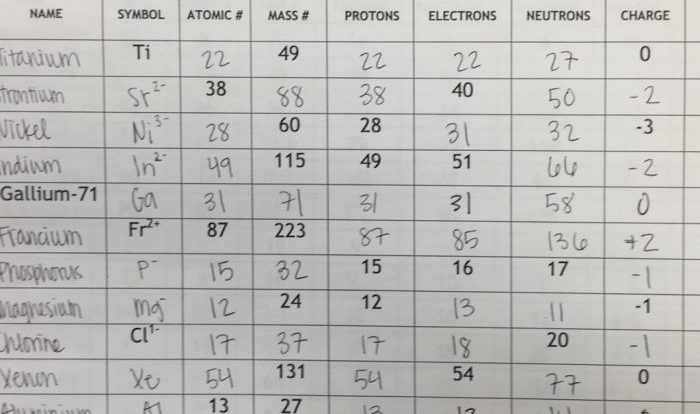 NAME SYMBOL ATOMIC # MASS # PROTONS ELECTRONS NEUTRONS CHARGE
Titanium Ti 22 49 22 22 27 0
trontium Sr²⁻ 38 88 38 40 50 -2
Nickel Ni³⁻ 28 60 28 31 32 -3
Indium In²⁻ 49 115 49 51 66 -2
Gallium-71 Ga 31 71 31 31 58 0
Francium Fr²⁺ 87 223 87 85 136 +2
Phosphorus P⁻ 15 32 15 16 17 -1
Magnesium Mg⁻ 12 24 12 13 11 -1
Chlorine Cl¹⁻ 17 37 17 18 20 -1
Xenon Xe 54 131 54 54 77 0
Al 13 27 13